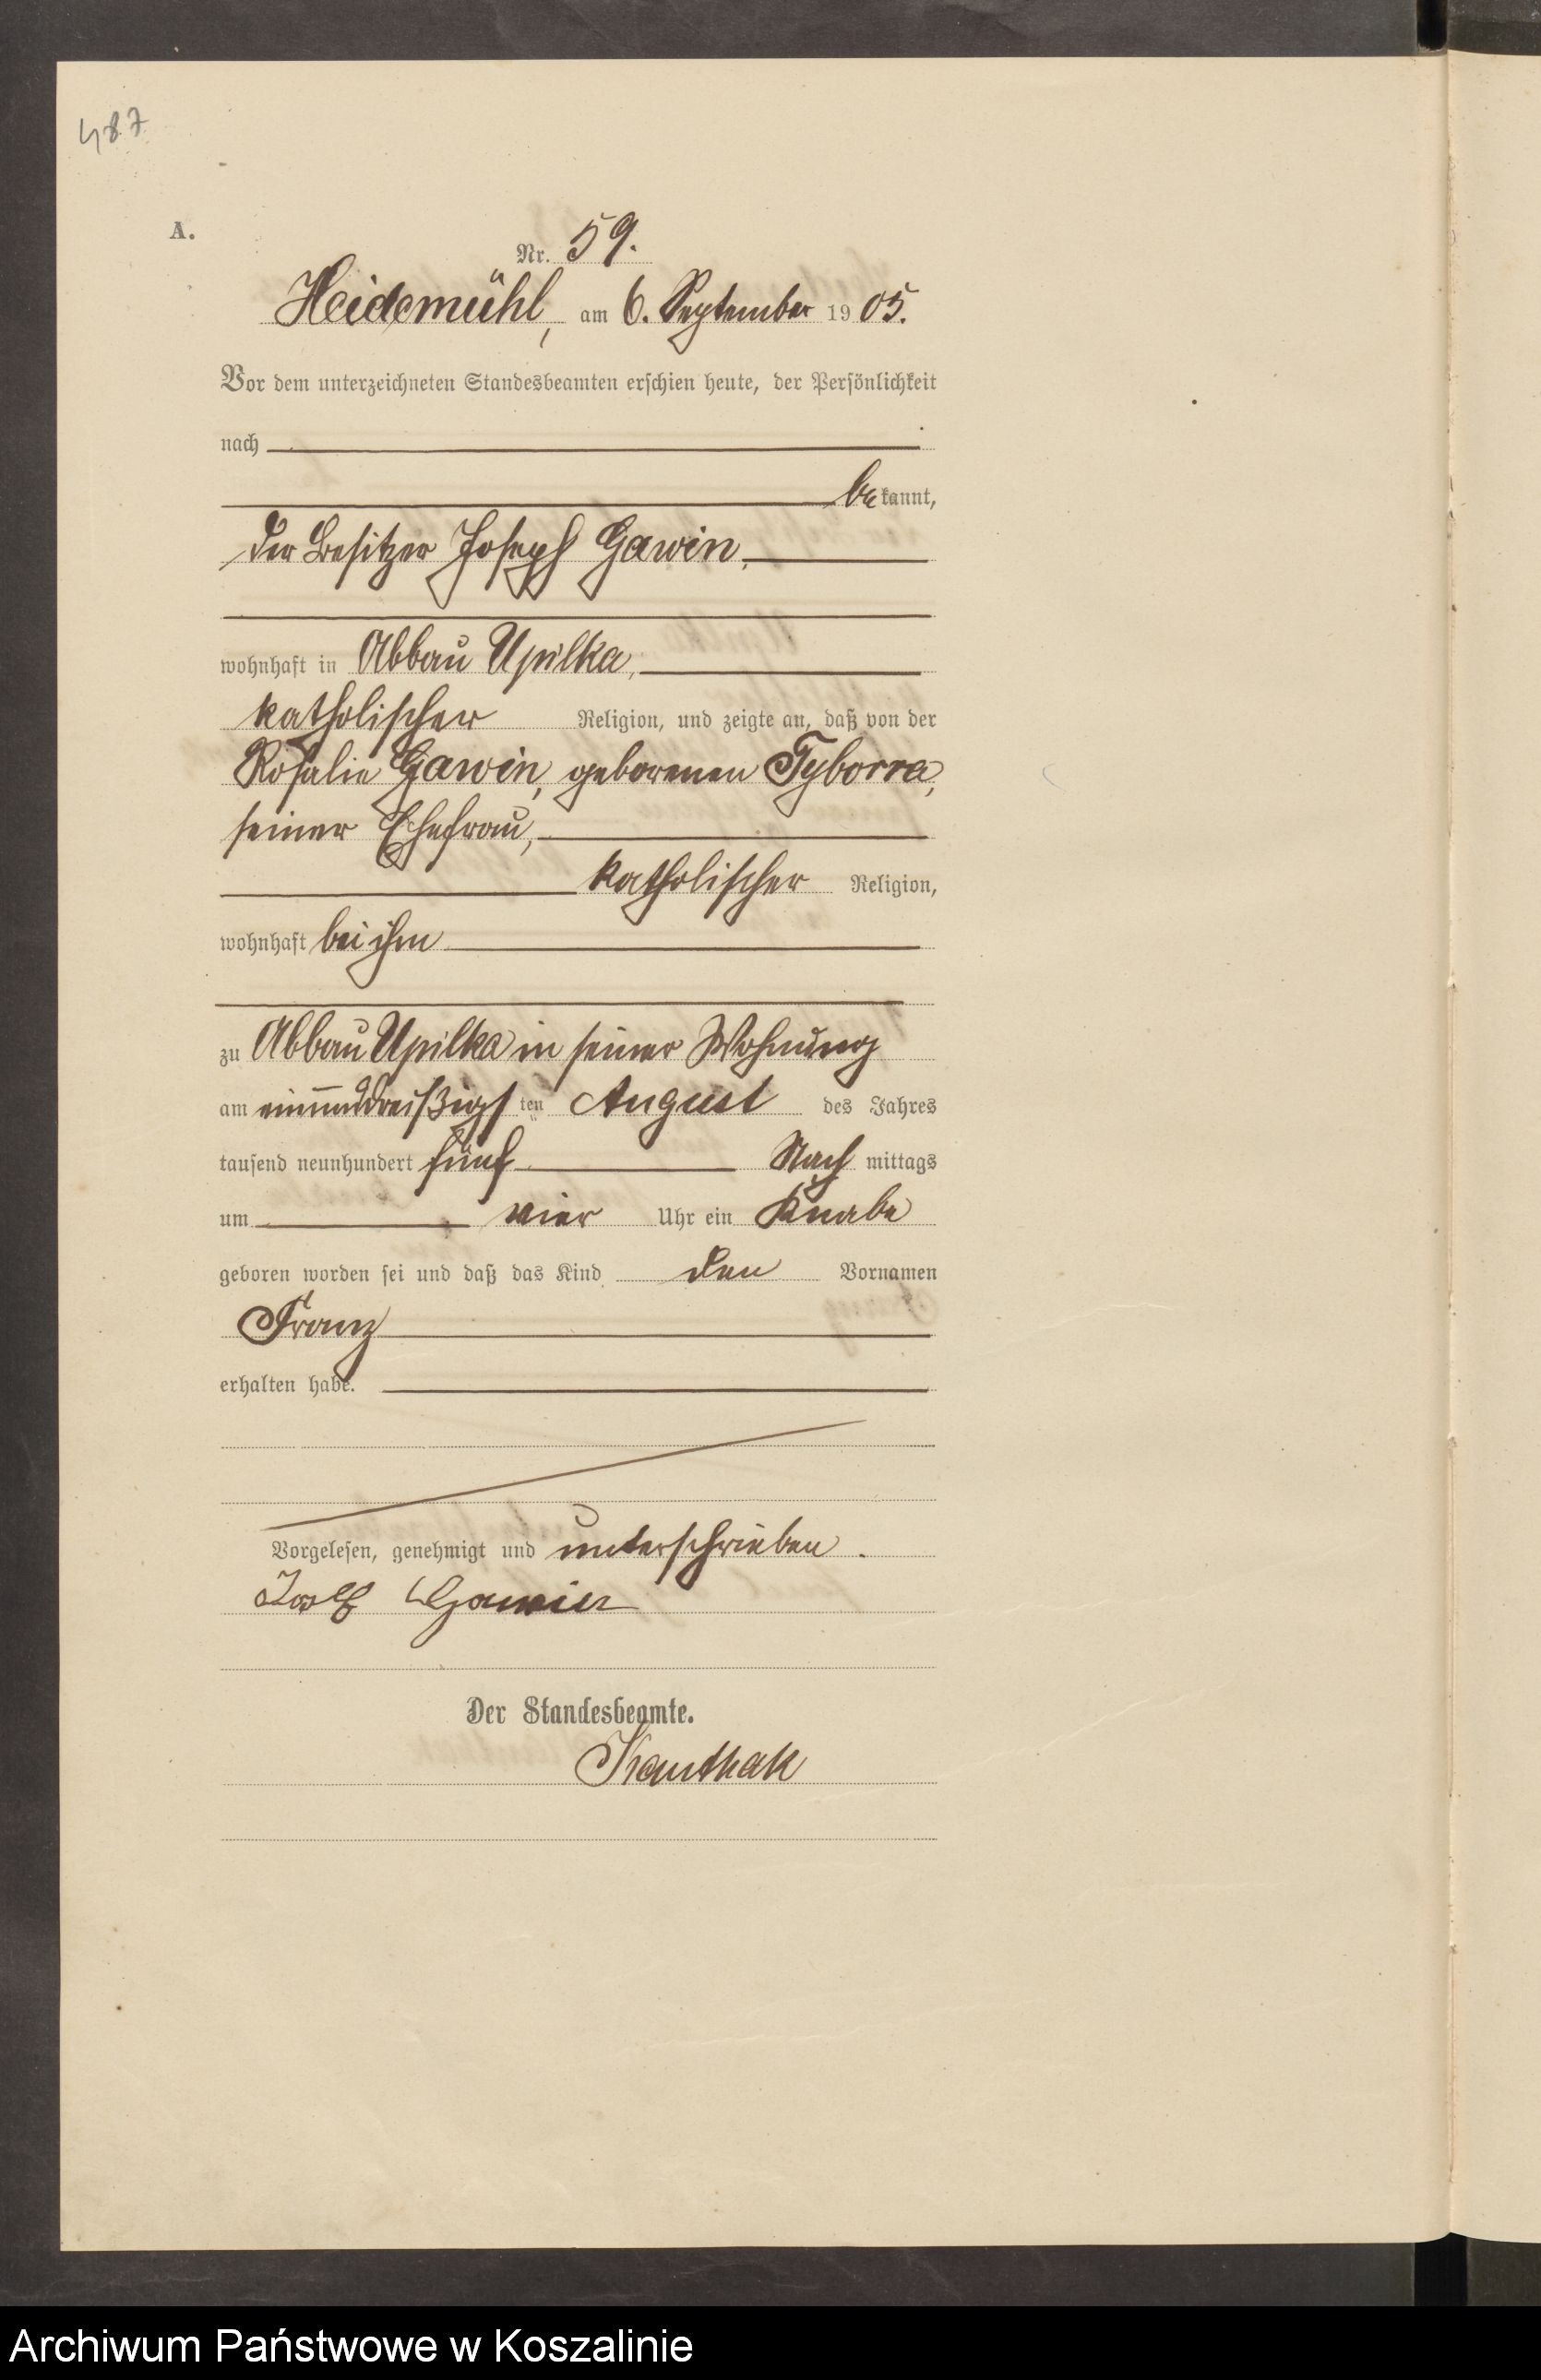 487
A.
Nr. 59.
Heidemühl, am 6. September 1905.
Vor dem unterzeichneten Standesbeamten erschien heute, der Persönlichkeit
nach
bekannt,
der Besitzer Joseph Gawin,
wohnhaft in Abbau Upilka,
katholischer Religion, und zeigte an, daß von der
Rosalie Gawin, geborenen Tyborra,
seiner Ehefrau,
katholischer Religion,
wohnhaft bei ihm
zu Abbau Upilka in seiner Wohnung
am einunddreißigsten August des Jahres
tausend neunhundert fünf Nachmittags
um vier Uhr ein Knabe
geboren worden sei und daß das Kind den Vornamen
Franz
erhalten habe.
Vorgelesen, genehmigt und unterschrieben.
Gawin
Der Standesbeamte.
Kauthak
Archiwum Państwowe w Koszalinie